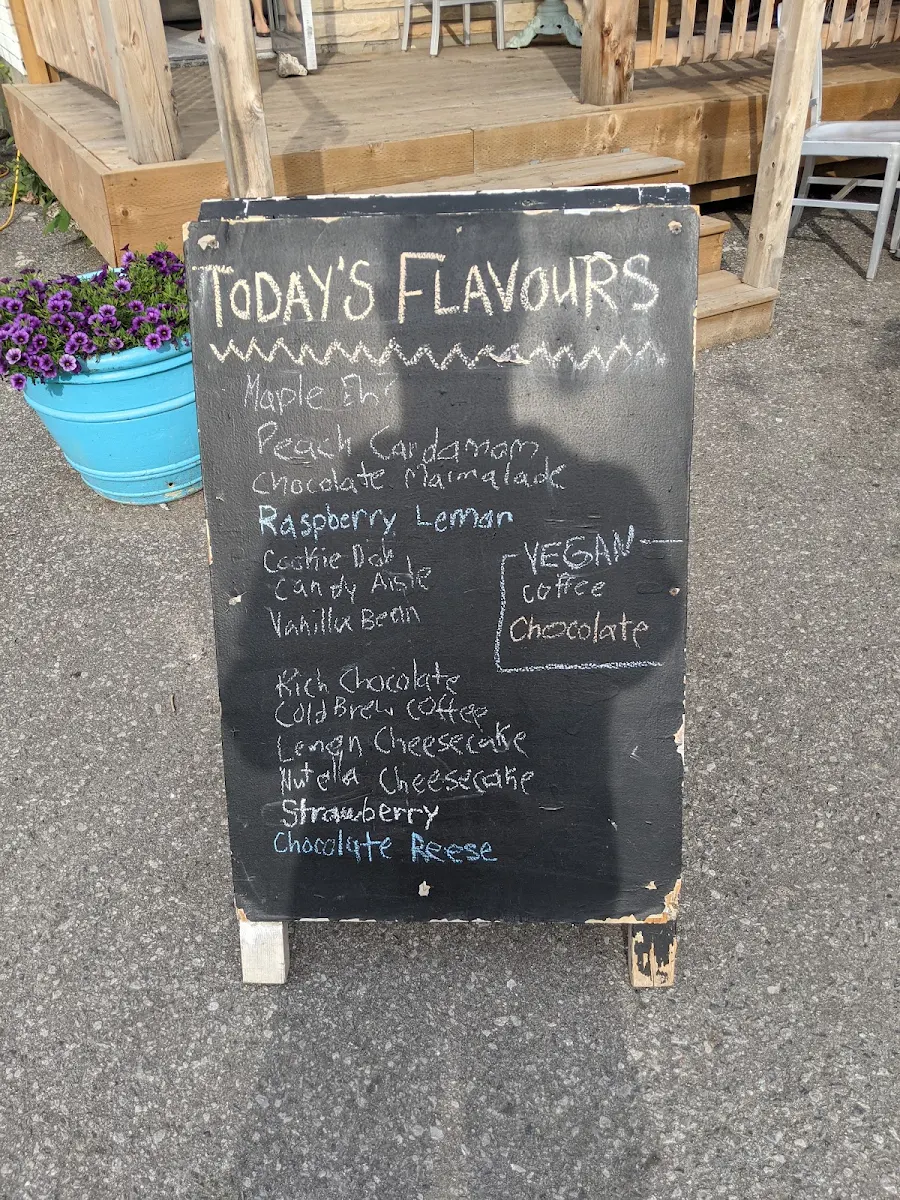 TODAY'S FLAVOURS
Maple Eh?
Peach Cardamom
Chocolate Marmalade
Raspberry Lemon
Cookie Doh
Candy Aisle
Vanilla Bean
VEGAN
Coffee
Chocolate
Rich Chocolate
Cold Brew Coffee
Lemon Cheesecake
Nutella Cheesecake
Strawberry
Chocolate Reese